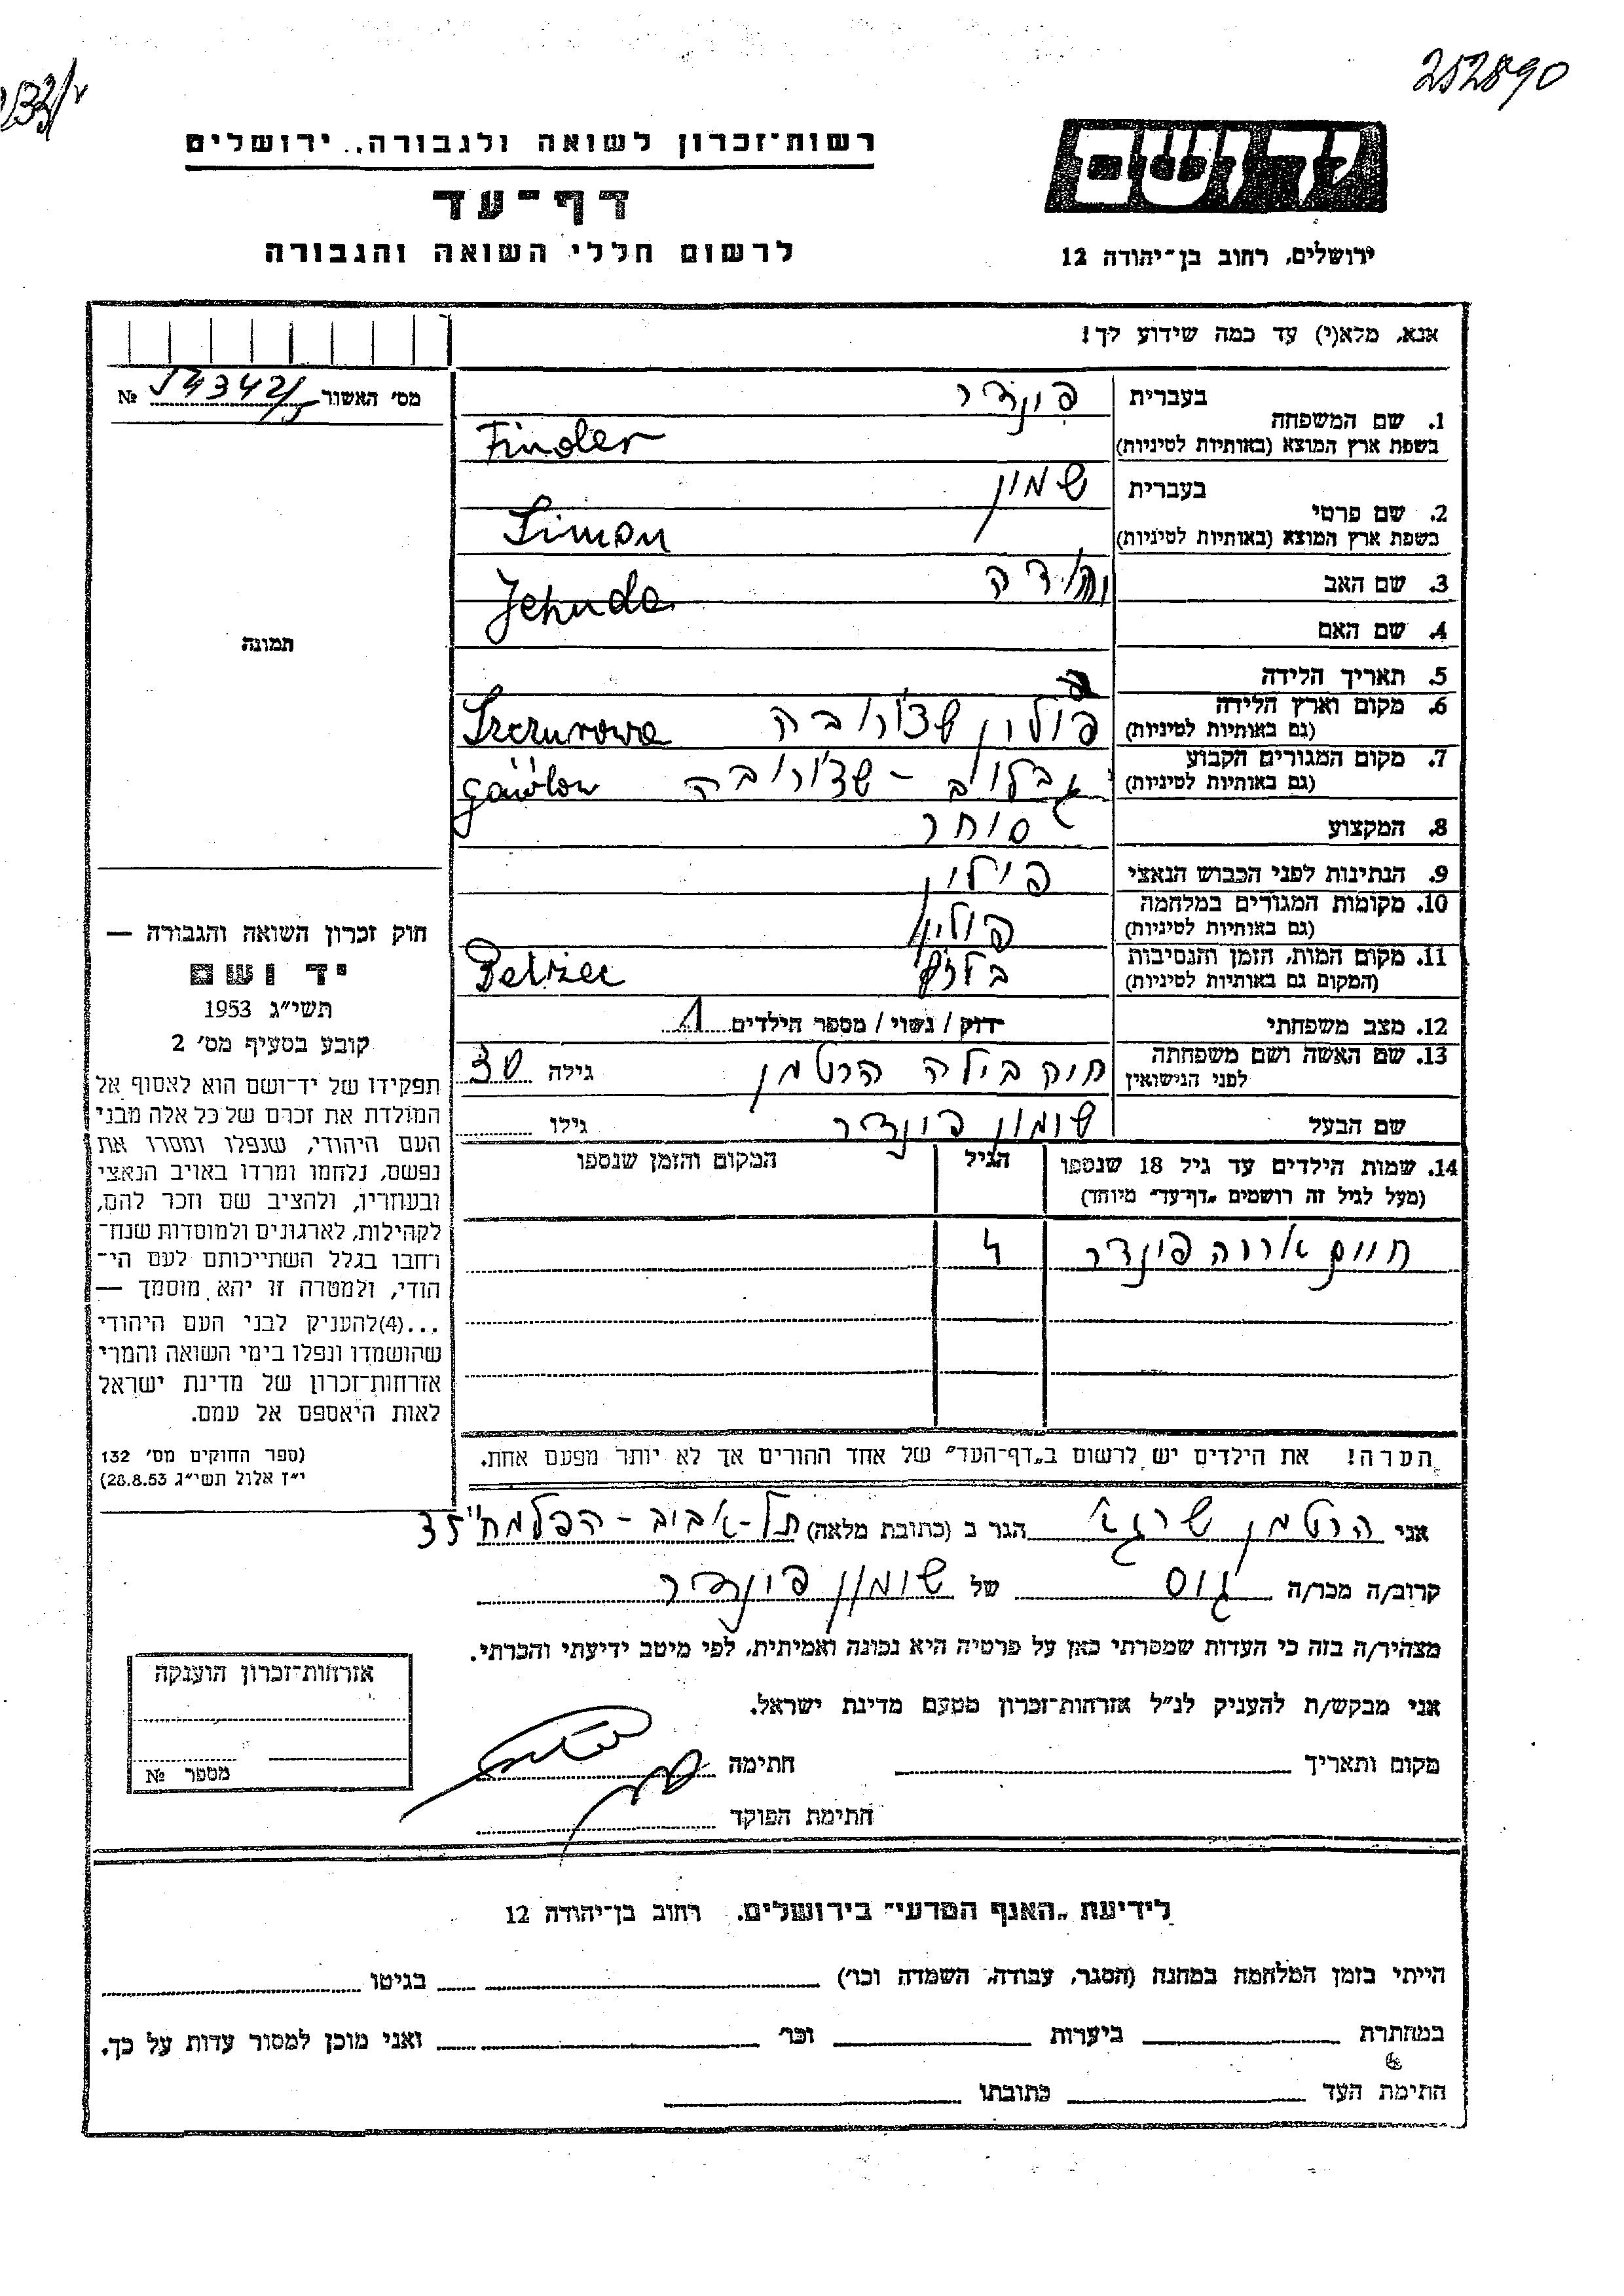 252890
רשות־זכרון לשואה ולגבורה, ירושלים
דף־עד
לרשום חללי השואה והגבורה
יד ושם
ירושלים, רחוב בן־יהודה 12
אנא, מלא(י) עד כמה שידוע לך!
מס׳ האשור № 54342/5
בעברית פינדר
1. שם המשפחה
בשפת ארץ המוצא (באותיות לטיניות) Finder
בעברית שמון
2. שם פרטי
בשפת ארץ המוצא (באותיות לטיניות) Simon
3. שם האב יהודה Jehuda
4. שם האם
5. תאריך הלידה
6. מקום וארץ הלידה
(גם באותיות לטיניות) פולין שצ׳ורובה Szczurowa
7. מקום המגורים הקבוע
(גם באותיות לטיניות) גבלוב - שצ׳ורובה
8. המקצוע סוחר
9. הנתינות לפני הכבוש הנאצי פולין
10. מקומות המגורים במלחמה
(גם באותיות לטיניות) פולין
11. מקום המות, הזמן והנסיבות
(המקום גם באותיות לטיניות) Belzec
12. מצב משפחתי רוק / נשוי / מספר הילדים 1
13. שם האשה ושם משפחתה
לפני הנישואין הרטמן גילה 30
שם הבעל שימון פינדר גילו
14. שמות הילדים עד גיל 18 שנספו
(מעל לגיל זה רושמים „דף־עד״ מיוחד)
הגיל
המקום והזמן שנספו
חיים פינדר 4
הערה! את הילדים יש לרשום ב„דף־העד״ של אחד ההורים אך לא יותר מפעם אחת.
תמונה
חוק זכרון השואה והגבורה —
יד ושם
תשי״ג 1953
קובע בסעיף מס׳ 2
תפקידו של יד־ושם הוא לאסוף אל
המולדת את זכרם של כל אלה מבני
העם היהודי, שנפלו ומסרו את
נפשם, נלחמו ומרדו באויב הנאצי
ובעוזריו, ולהציב שם וזכר להם,
לקהילות, לארגונים ולמוסדות שנח־
רחבו בגלל השתייכותם לעם הי־
הודי, ולמטרה זו יהא מוסמך —
...(4)להעניק לבני העם היהודי
שהושמדו ונפלו בימי השואה והמרי
אזרחות־זכרון של מדינת ישראל
לאות היאספם אל עמם.
(ספר החוקים מס׳ 132
י״ז אלול תשי״ג 28.8.53)
אני הרטמן שרגא הגר ב (כתובת מלאה) תל-אביב - הפלמ״ח 35
קרוב/ה מכר/ה גיס של שימון פינדר
מצהיר/ה בזה כי העדות שמסרתי כאן על פרטיה היא נכונה ואמיתית, לפי מיטב ידיעתי והכרתי.
אני מבקש/ת להעניק לנ״ל אזרחות־זכרון מטעם מדינת ישראל.
מקום ותאריך חתימה
חתימת הפוקד
אזרחות־זכרון הוענקה
מספר №
לידיעת „האגף המדעי״ בירושלים. רחוב בן־יהודה 12
הייתי בזמן המלחמה במחנה (הסגר, עבודה, השמדה וכו׳) בגיטו
במחתרת ביערות וכו׳ ואני מוכן למסור עדות על כך.
חתימת העד כתובתו